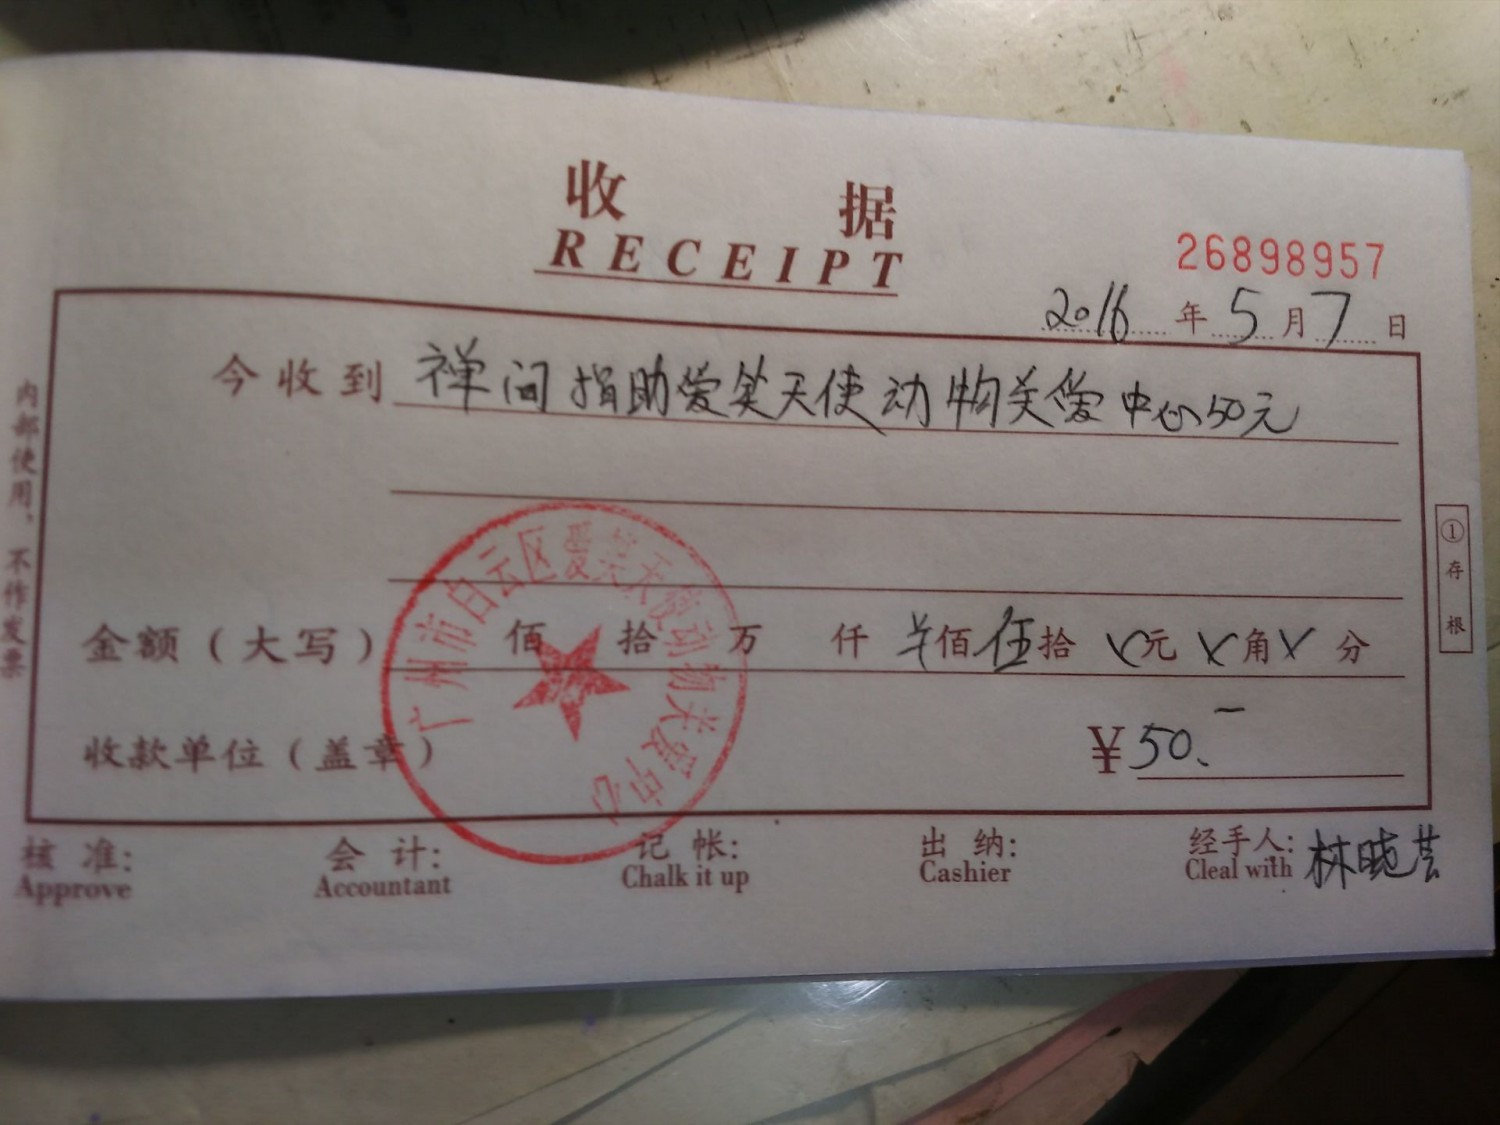 收 据
RECEIPT
26898957
2016 年 5 月 7 日
今收到 禅间捐助爱笑天使动物关爱中心50元
金额（大写） 佰 拾 万 仟 ¥佰 伍拾 X元 X角 X分
收款单位（盖章） ¥50.-
广州市白云区爱笑天使动物关爱中心
核 准: 会 计: 记 帐: 出 纳: 经手人: 林晓芸
Approve Accountant Chalk it up Cashier Cleal with
内部使用，不作发票
①存根